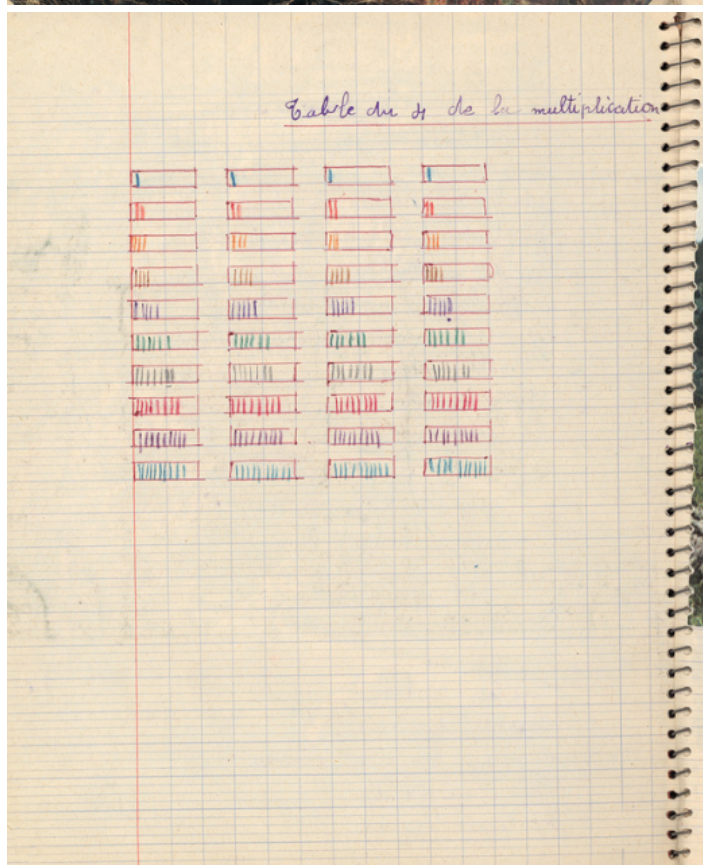 Table du 4 de la multiplication